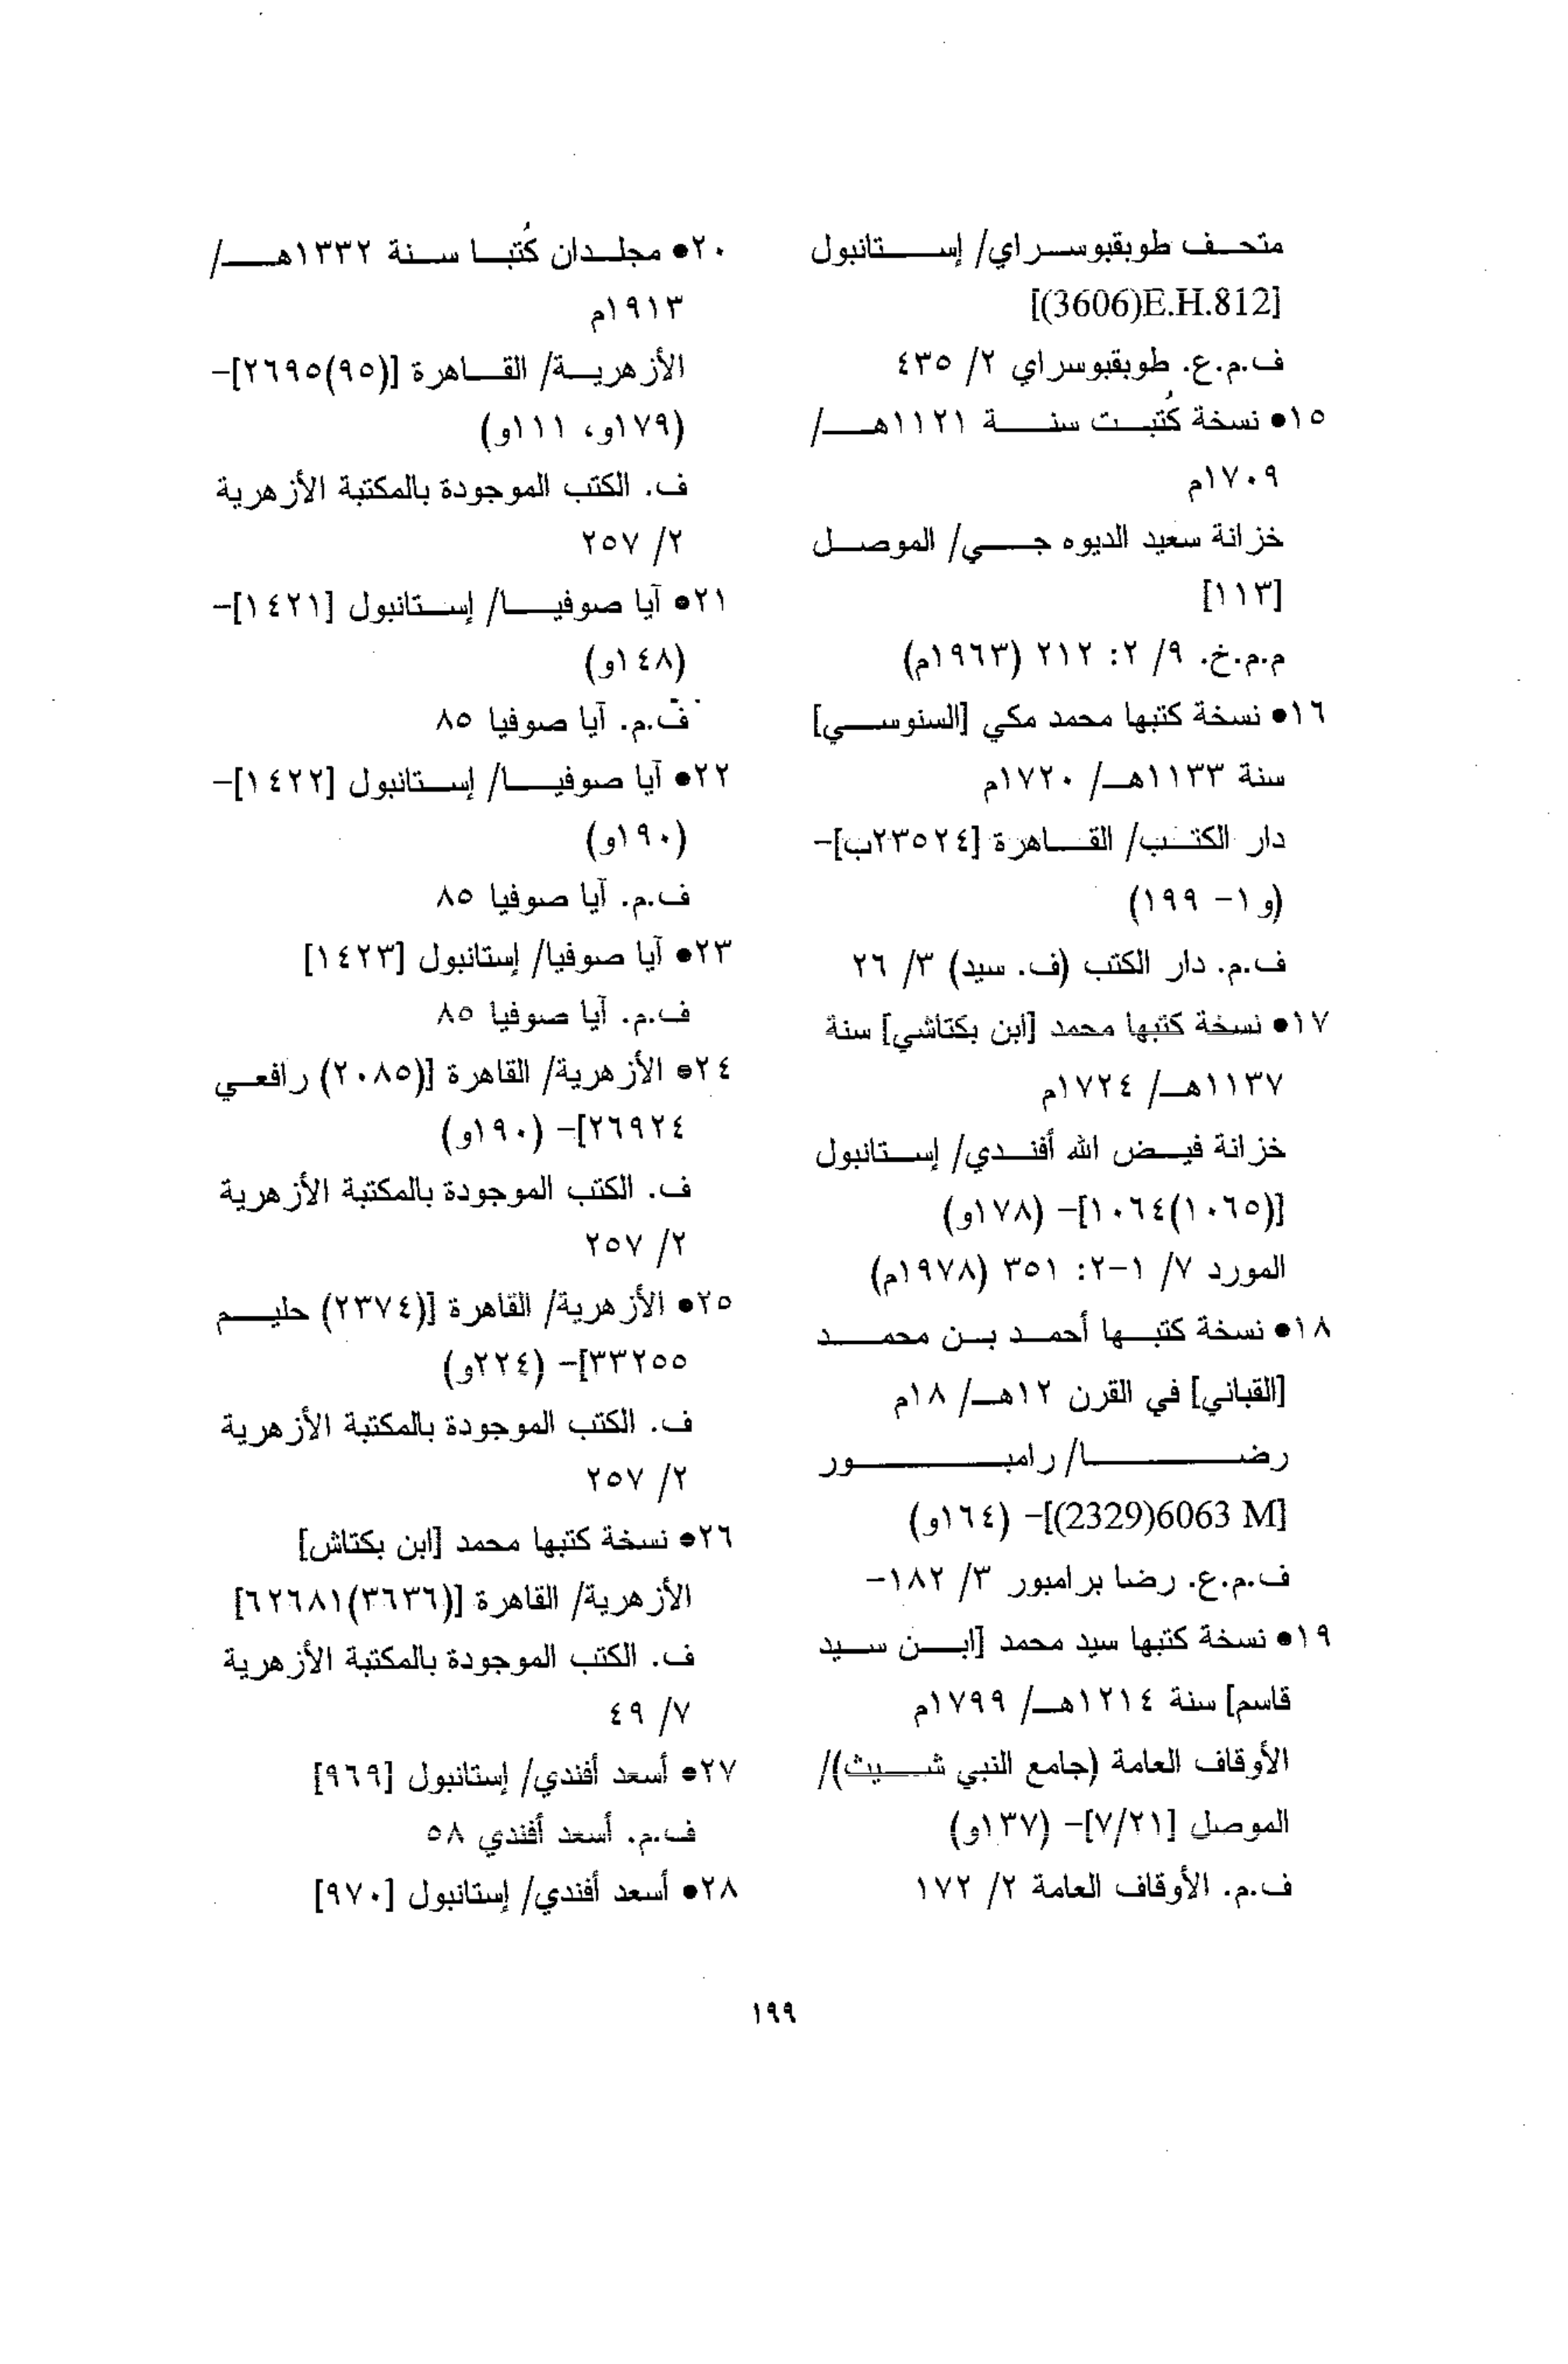 متحف طوبقبوسراي/ إستانبول
[(3606)E.H.812]
ف.م.ع. طوبقبوسراي ٢/ ٤٣٥
١٥● نسخة كُتبت سنة ١١٢١هـ/
١٧٠٩م
خزانة سعيد الديوه جي/ الموصل
[١١٣]
م.م.خ. ٩/ ٢: ٢١٢ (١٩٦٣م)
١٦● نسخة كتبها محمد مكي [السنوسي]
سنة ١١٣٣هـ/ ١٧٢٠م
دار الكتب/ القاهرة [٢٣٥٢٤ب]-
(و ١- ١٩٩)
ف.م. دار الكتب (ف. سيد) ٣/ ٢٦
١٧● نسخة كتبها محمد [ابن بكتاشي] سنة
١١٣٧هـ/ ١٧٢٤م
خزانة فيض الله أفندي/ إستانبول
[(١٠٦٥)١٠٦٤]- (١٧٨و)
المورد ٧/ ١-٢: ٣٥١ (١٩٧٨م)
١٨● نسخة كتبها أحمد بن محمد
[القباني] في القرن ١٢هـ/ ١٨م
رضا/ رامبور
[(2329)6063 M]- (١٦٤و)
ف.م.ع. رضا برامبور ٣/ ١٨٢-
١٩● نسخة كتبها سيد محمد [ابن سيد
قاسم] سنة ١٢١٤هـ/ ١٧٩٩م
الأوقاف العامة (جامع النبي شيث)/
الموصل [٧/٢١]- (١٣٧و)
ف.م. الأوقاف العامة ٢/ ١٧٢
٢٠● مجلدان كُتبا سنة ١٣٣٢هـ/
١٩١٣م
الأزهرية/ القاهرة [(٩٥)٢٦٩٥]-
(١٧٩و، ١١١و)
ف. الكتب الموجودة بالمكتبة الأزهرية
٢/ ٢٥٧
٢١● آيا صوفيا/ إستانبول [١٤٢١]-
(١٤٨و)
ف.م. آيا صوفيا ٨٥
٢٢● آيا صوفيا/ إستانبول [١٤٢٢]-
(١٩٠و)
ف.م. آيا صوفيا ٨٥
٢٣● آيا صوفيا/ إستانبول [١٤٢٣]
ف.م. آيا صوفيا ٨٥
٢٤● الأزهرية/ القاهرة [(٢٠٨٥) رافعي
٢٦٩٢٤]- (١٩٠و)
ف. الكتب الموجودة بالمكتبة الأزهرية
٢/ ٢٥٧
٢٥● الأزهرية/ القاهرة [(٢٣٧٤) حليم
٣٣٢٥٥]- (٢٢٤و)
ف. الكتب الموجودة بالمكتبة الأزهرية
٢/ ٢٥٧
٢٦● نسخة كتبها محمد [ابن بكتاش]
الأزهرية/ القاهرة [(٣٦٣٦)٦٢٦٨١]
ف. الكتب الموجودة بالمكتبة الأزهرية
٧/ ٤٩
٢٧● أسعد أفندي/ إستانبول [٩٦٩]
ف.م. أسعد أفندي ٥٨
٢٨● أسعد أفندي/ إستانبول [٩٧٠]
١٩٩